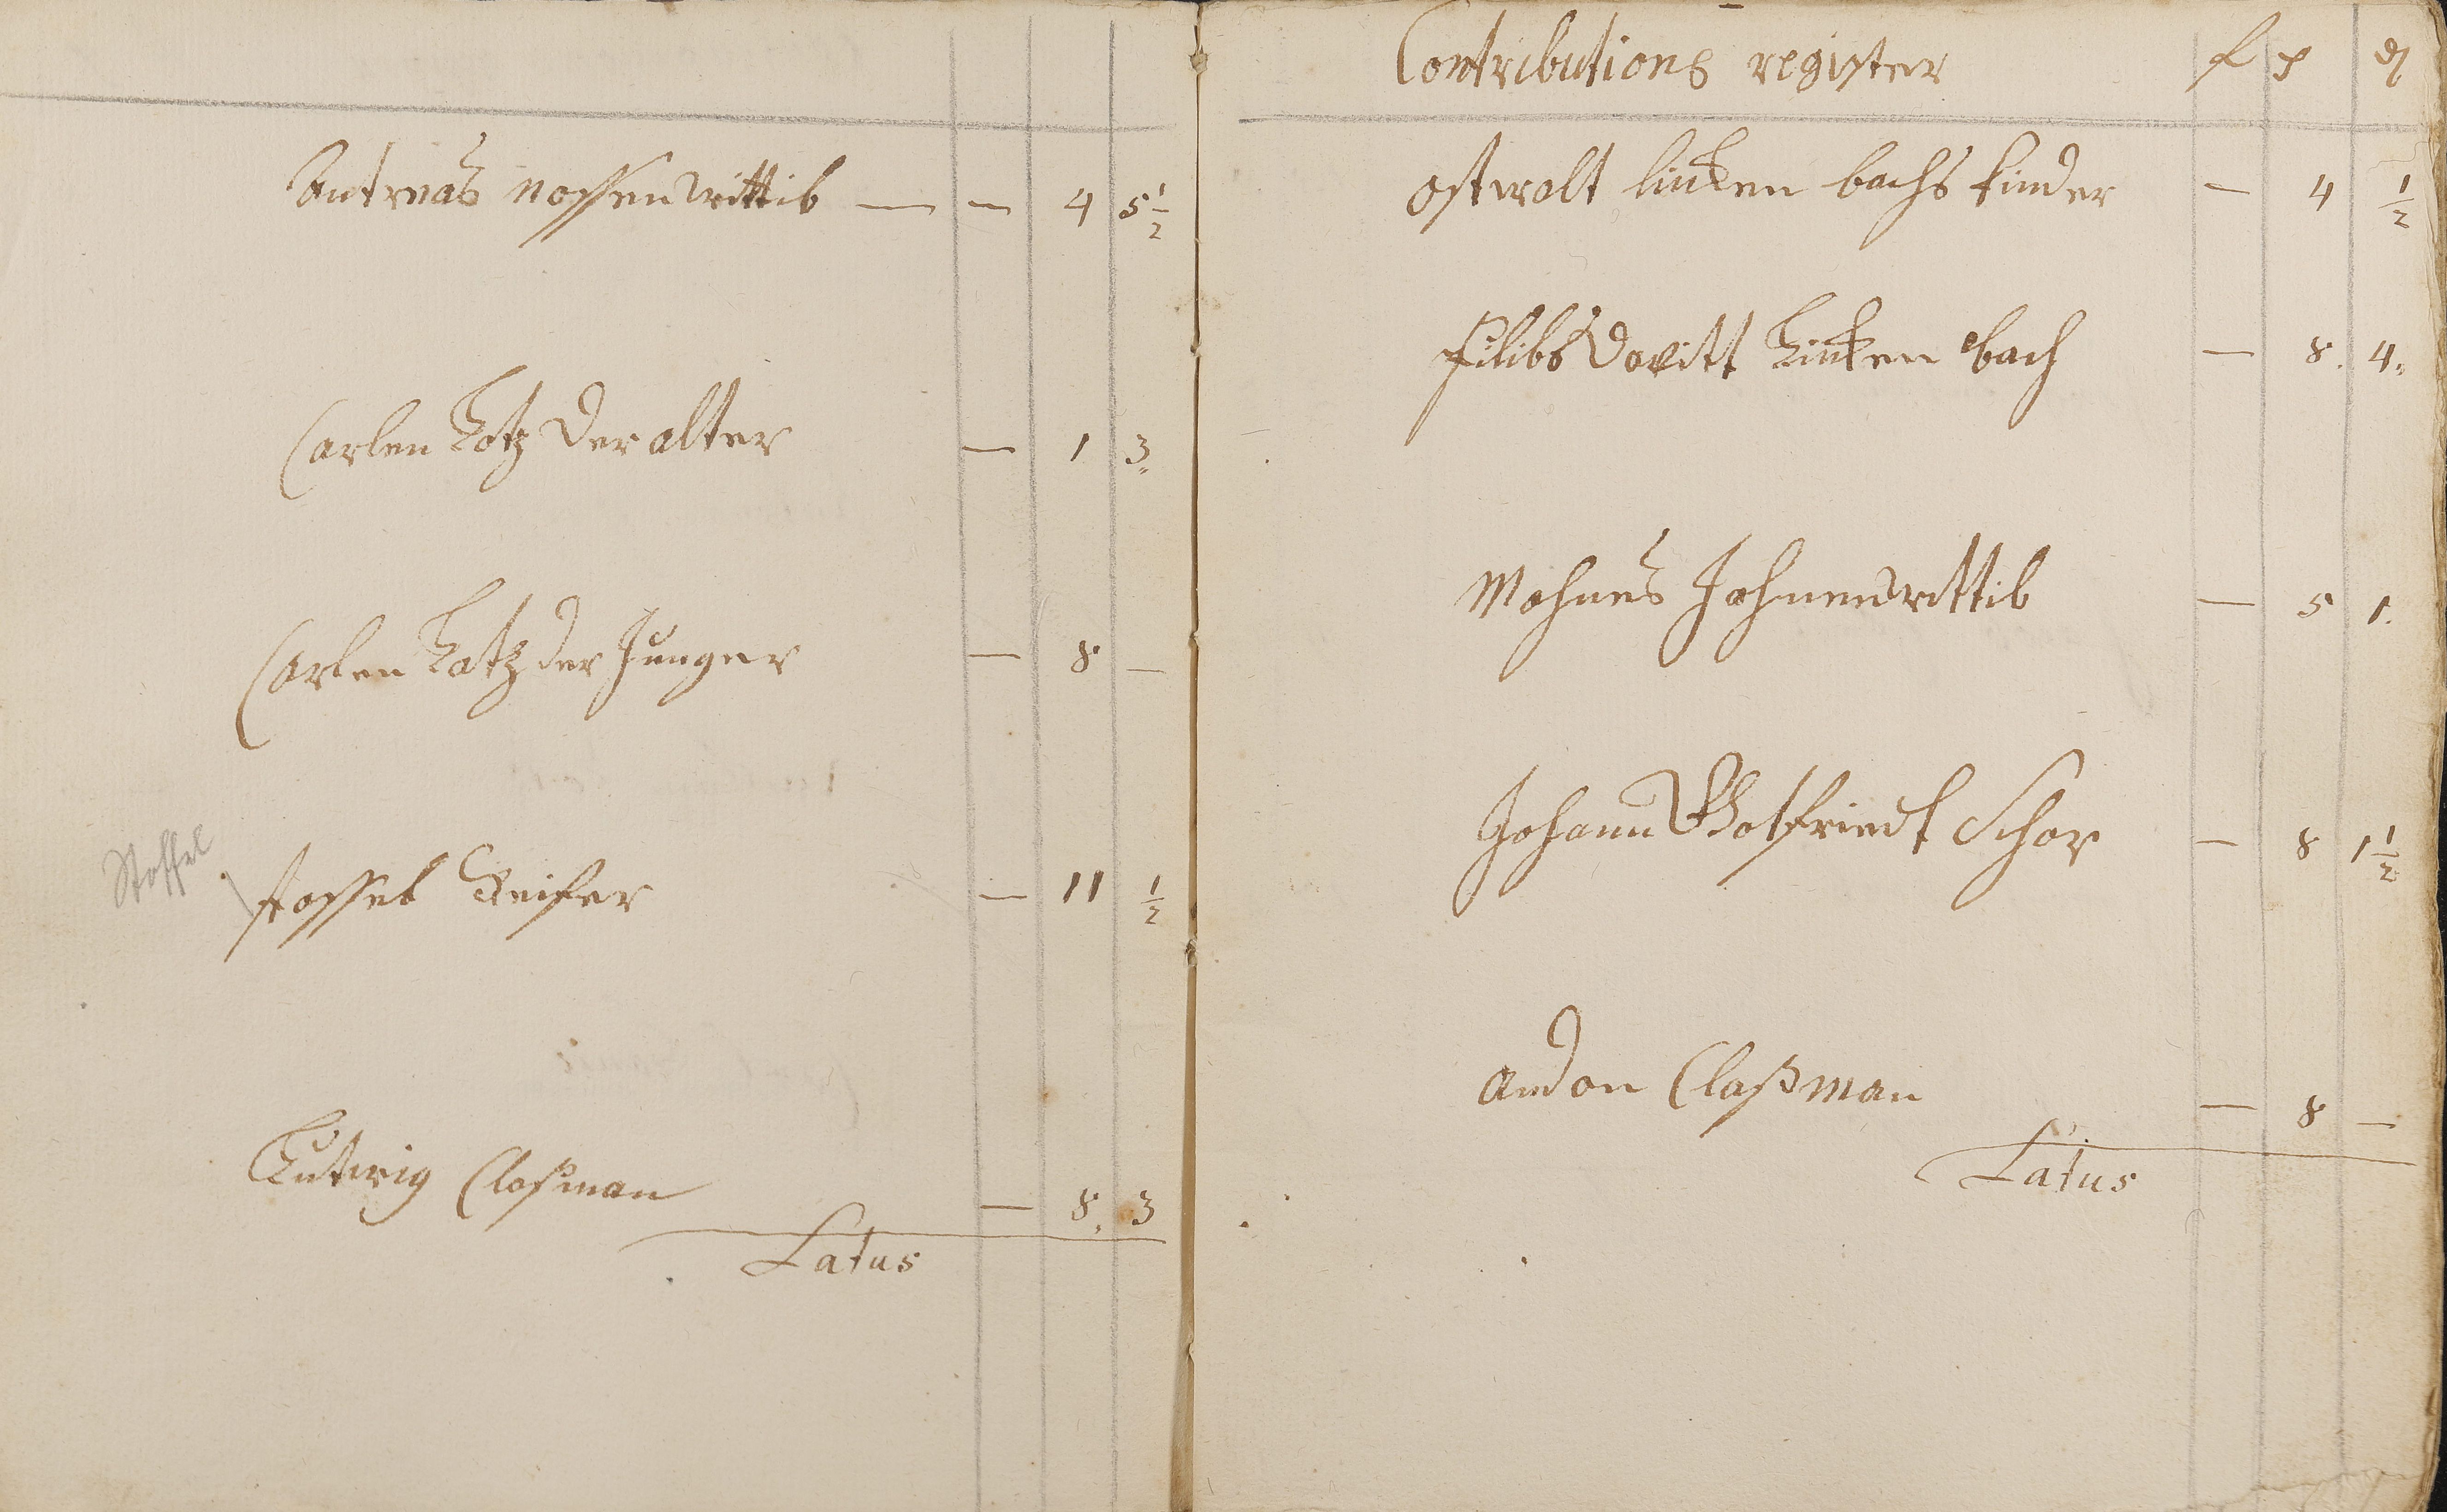 Antreas nossen Wittib — — 4 5 1/2
Carlen Lotz der alter — 1 3
Carlen Lotz der Junger — 8 —
Stoffel
stoffel Keiser — 11 1/2
Lutwig Closman — 8. 3
Latus
Contributions register f x ₰
ostwalt linken bachs kinder — 4 1/2
filibs Davitt Linken bach — 8. 4.
Mahnes Johnen Wittib — 5 1.
Johann Gotfriedt Schor — 8 1 1/2
andon Claßman — 8 —
Latus